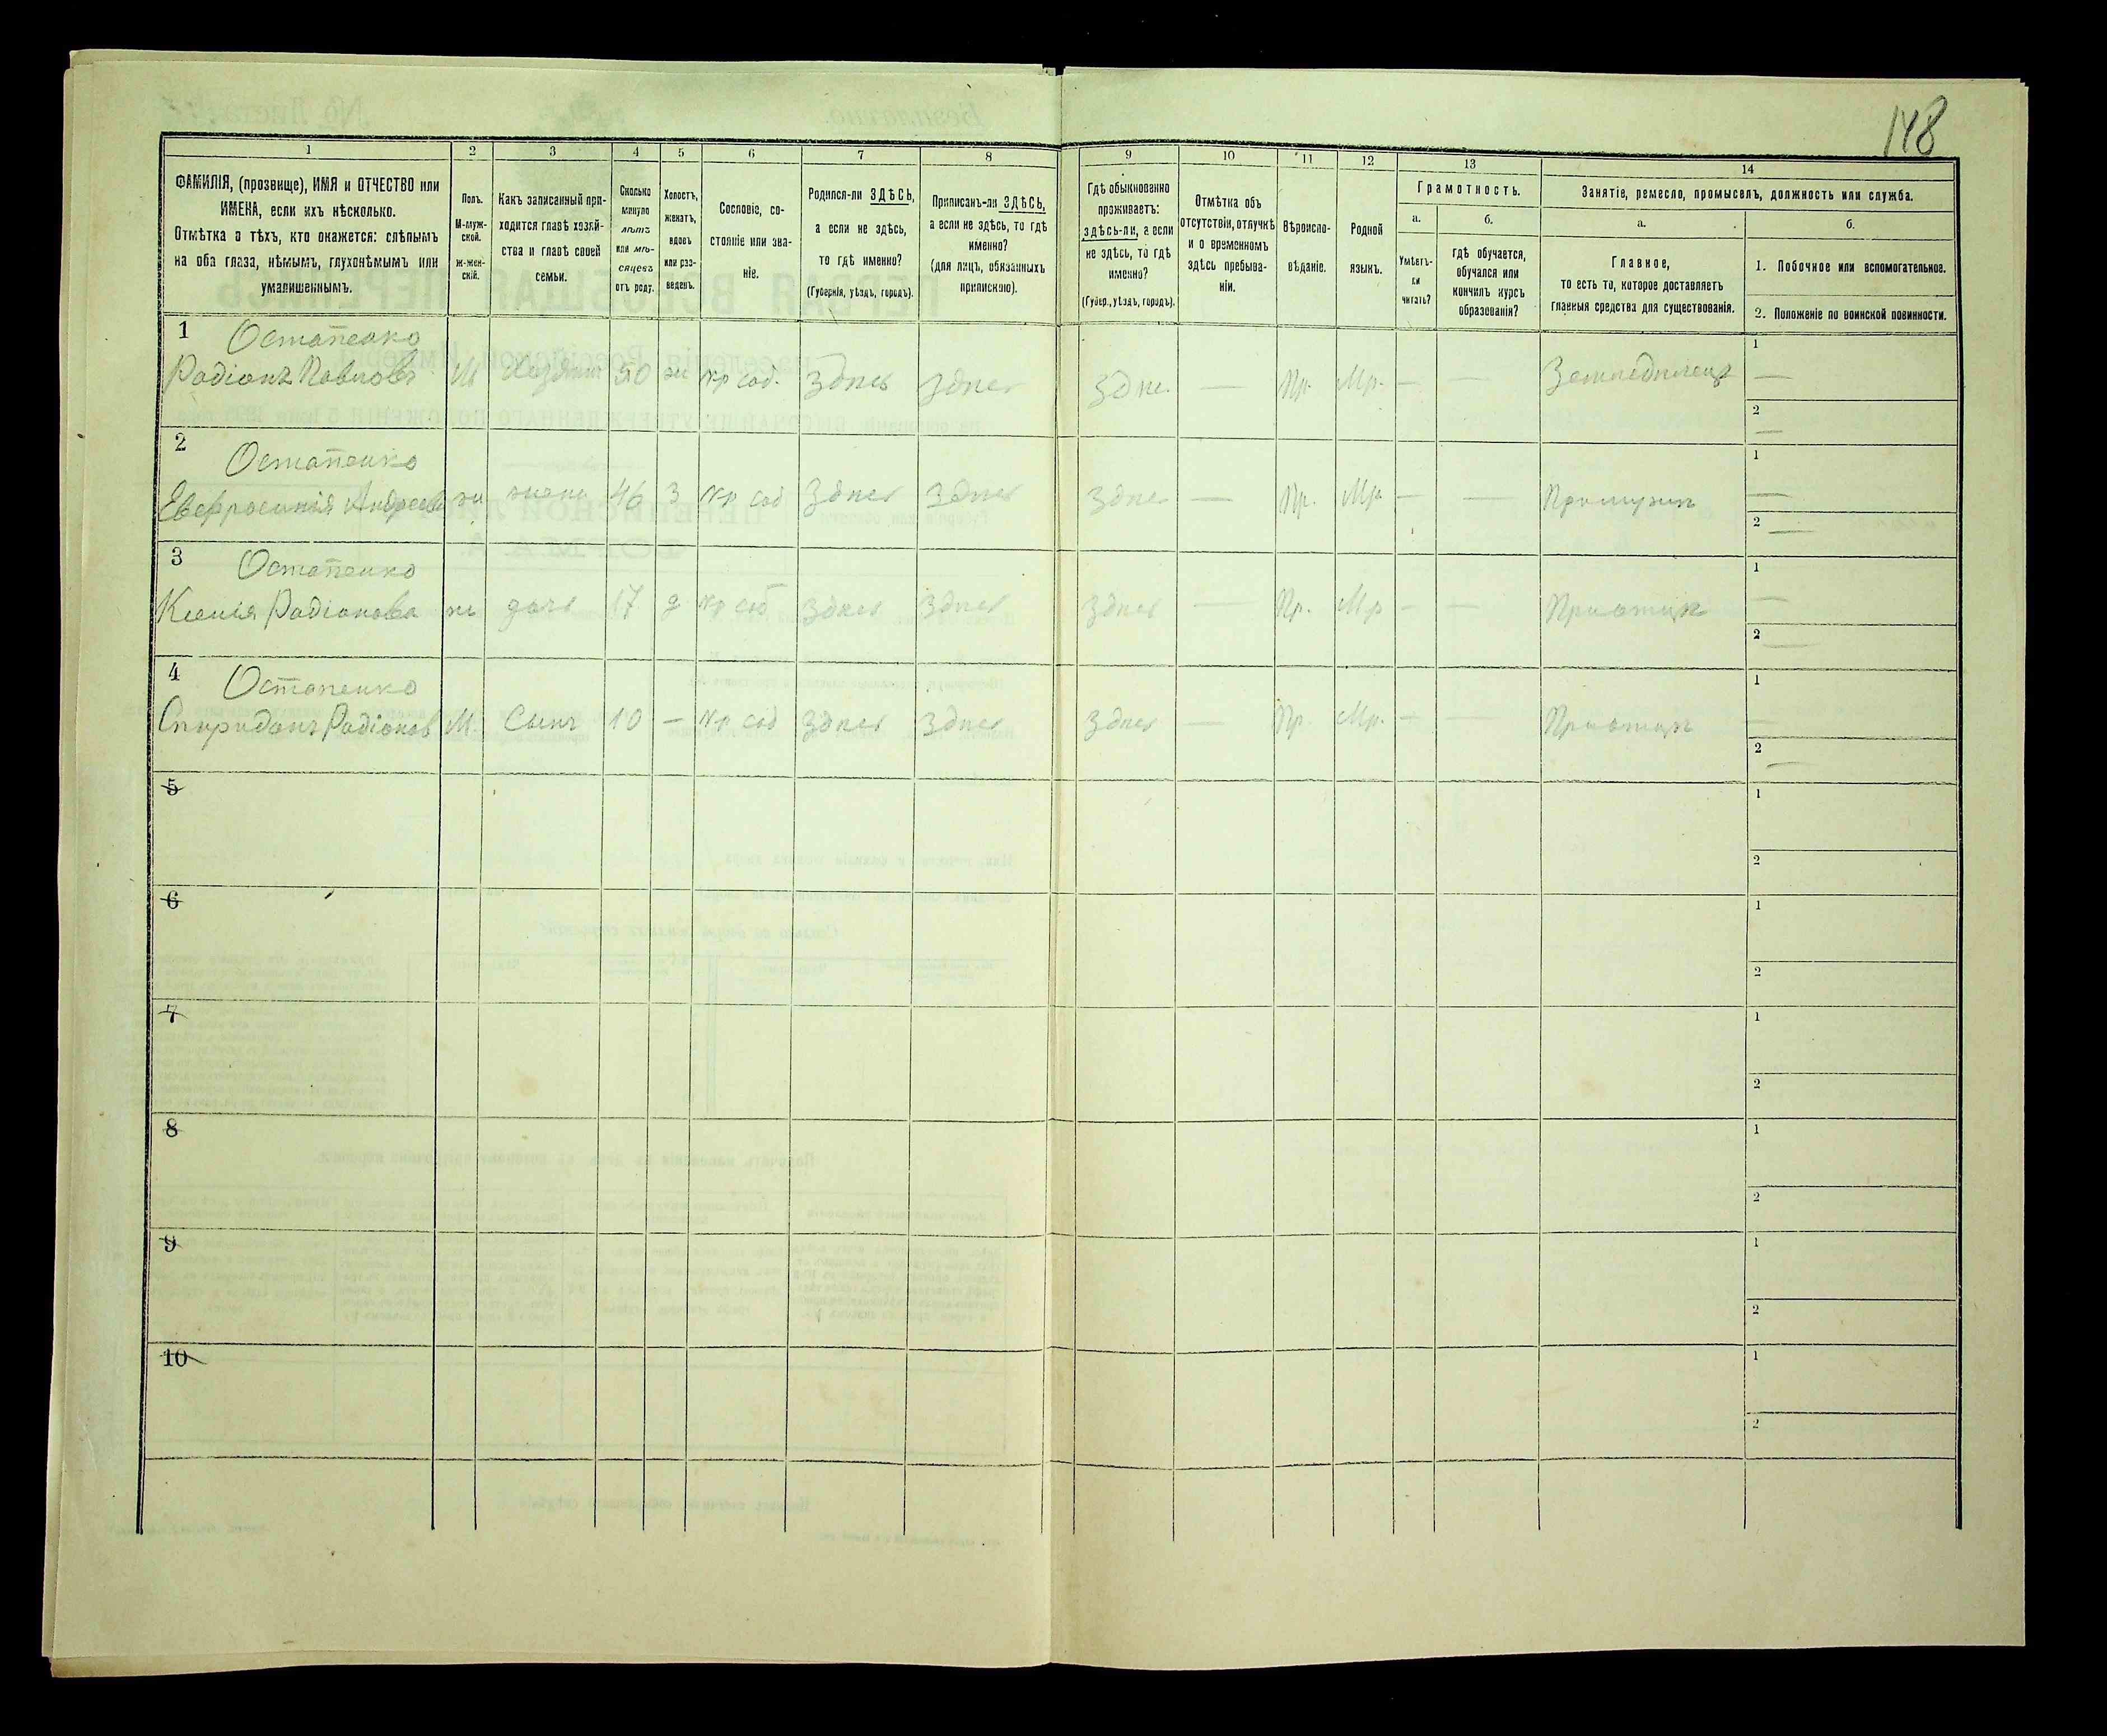 148
1 2 3 4 5 6 7 8 9 10 11 12 13 14
ФАМИЛІЯ, (прозвище), ИМЯ и ОТЧЕСТВО или
ИМЕНА, если ихъ нѣсколько.
Отмѣтка о тѣхъ, кто окажется: слѣпымъ
на оба глаза, нѣмымъ, глухонѣмымъ или
умалишеннымъ.
Полъ.
М-муж-
ской.
ж-жен-
скій.
Какъ записанный при-
ходится главѣ хозяй-
ства и главѣ своей
семьи.
Сколько
минуло
лѣтъ
или мѣ-
сяцевъ
отъ роду.
Холостъ,
женатъ,
вдовъ
или раз-
веденъ.
Сословіе, со-
стояніе или зва-
ніе.
Родился-ли ЗДѢСЬ,
а если не здѣсь,
то гдѣ именно?
(Губернія, уѣздъ, городъ).
Приписанъ-ли ЗДѢСЬ,
а если не здѣсь, то гдѣ
именно?
(для лицъ, обязанныхъ
припискою).
Гдѣ обыкновенно
проживаетъ:
здѣсь-ли, а если
не здѣсь, то гдѣ
именно?
(Губер., уѣздъ, городъ).
Отмѣтка объ
отсутствіи, отлучкѣ
и о временномъ
здѣсь пребыва-
ніи.
Вѣроиспо-
вѣданіе.
Родной
языкъ.
Грамотность.
а.
Умѣетъ-
ли
читать?
б.
гдѣ обучается,
обучался или
кончилъ курсъ
образованія?
Занятіе, ремесло, промыселъ, должность или служба.
а.
Главное,
то есть то, которое доставляетъ
главныя средства для существованія.
б.
1. Побочное или вспомогательное.
2. Положеніе по воинской повинности.
1 Остапенко 1
Радіонъ Павловъ М Хозяин 50 ж кр соб. Здесь Здесь Здес — Пр. Мр. — — Земледелецъ —
2 —
2 Остапенко 1
Евфросинія Андреева ж жена 46 З кр соб Здесь Здесь Здесь — Пр. Мр. — — —
2 —
3 Остапенко 1
Ксенія Радіонова ж дочь 17 д кр соб Здесь Здесь Здесь — Пр. Мр — — —
2 —
4 Остапенко 1
Спиридонъ Радіонов М. Сынъ 10 — кр соб Здесь Здесь Здесь — Пр. Мр. — — —
2 —
5 1
2
6 1
2
7 1
2
8 1
2
9 1
2
10 1
2